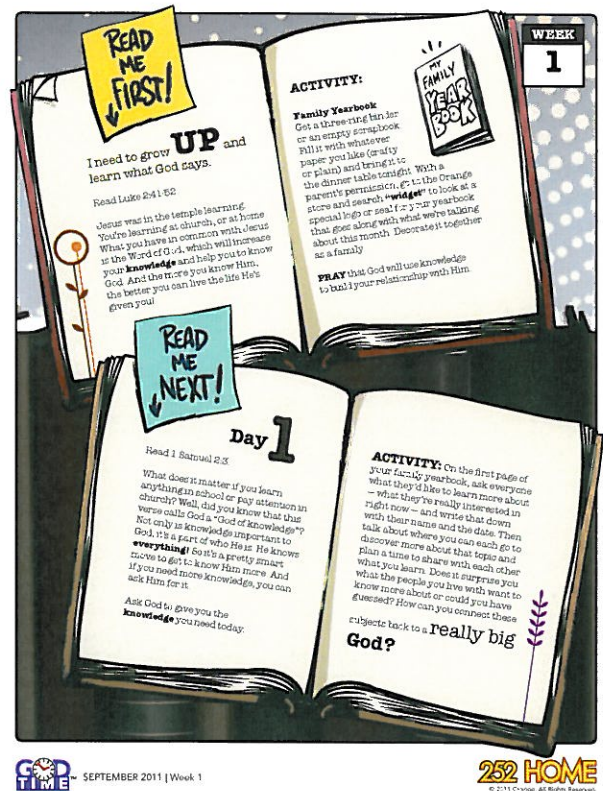 WEEK
1
READ
ME
FIRST!
I need to grow UP and
learn what God says.
Read Luke 2:41-52
Jesus was in the temple learning.
You're learning at church, or at home
What you have in common with Jesus
is the Word of God, which will increase
your knowledge and help you to know
God. And the more you know Him,
the better you can live the life He's
given you!
ACTIVITY:
Family Yearbook
Get a three-ring binder
or an empty scrapbook
Fill it with whatever
paper you like (crafty
or plain) and bring it to
the dinner table tonight. With a
parent's permission, go to the Orange
store and search "widget" to look at a
special logo or seal for your yearbook
that goes along with what we're talking
about this month. Decorate it together
as a family
PRAY that God will use knowledge
to build your relationship with Him
MY
FAMILY
YEAR
BOOK
READ
ME
NEXT!
Day 1
Read 1 Samuel 2:3.
What does it matter if you learn
anything in school or pay attention in
church? Well, did you know that this
verse calls God a "God of knowledge"?
Not only is knowledge important to
God, it's a part of who He is. He knows
everything! So it's a pretty smart
move to get to know Him more. And
if you need more knowledge, you can
ask Him for it.
Ask God to give you the
knowledge you need today.
ACTIVITY: On the first page of
your family yearbook, ask everyone
what they'd like to learn more about
– what they're really interested in
right now – and write that down
with their name and the date. Then
talk about where you can each go to
discover more about that topic and
plan a time to share with each other
what you learn. Does it surprise you
what the people you live with want to
know more about or could you have
guessed? How can you connect these
subjects back to a really big
God?
GOD
TIME™ SEPTEMBER 2011 | Week 1
252 HOME
© 2011 Orange. All Rights Reserved.